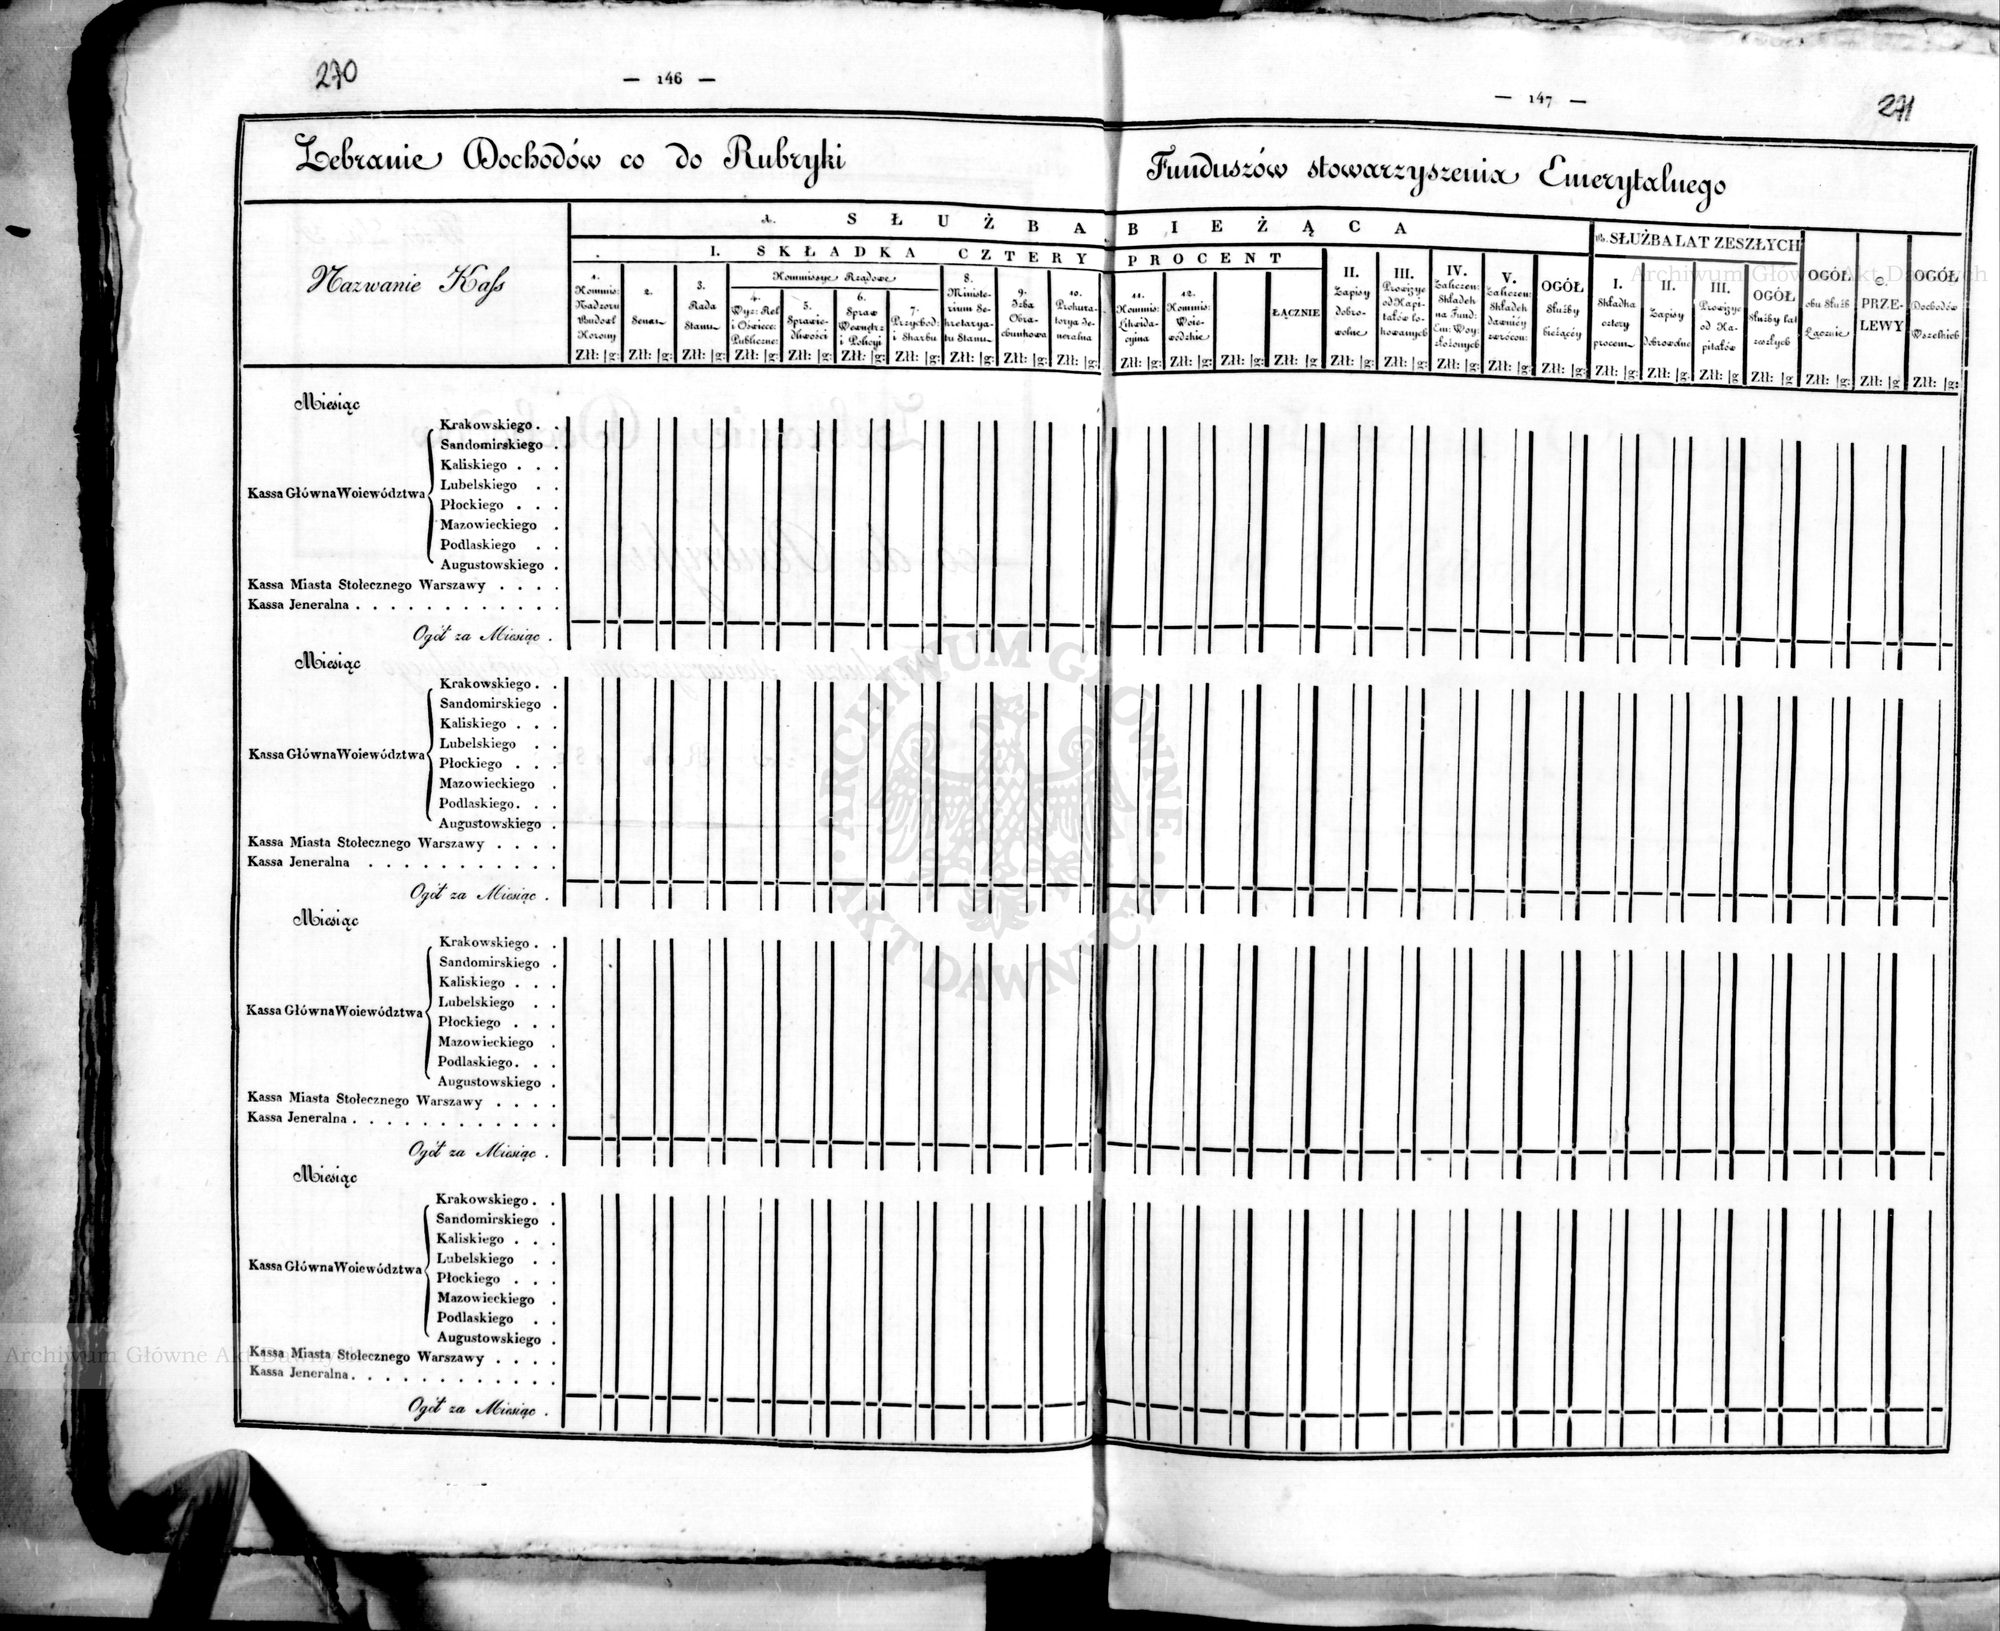 270
— 146 —
— 147 —
271
Zebranie Dochodów co do Rubryki
Funduszów stowarzyszenia Emerytalnego
Nazwanie Kass
A. SŁUŻBA BIEŻĄCA
B. SŁUŻBA LAT ZESZŁYCH
I. SKŁADKA CZTERY PROCENT
Kommissye Rządowe
1. Kommis: Nadzoru Budowl Korony
2. Senat
3. Rada Stanu
4. Wyz: Rel i Oświec: Publiczne:
5. Sprawiedliwości
6. Spraw Wewnętrz i Policyi
7. Przychod: i Skarbu
8. Ministerium Sekretaryatu Stanu
9. Izba Obrachunkowa
10. Prokuratorya Jeneralna
11. Kommis: Likwidacyjna
12. Kommis: Woiewodzkie
ŁĄCZNIE
II. Zapisy dobrowolne
III. Prowizye od Kapitałów lokowanych
IV. Zaliczen: Składek na Fund: Em: Woy: złożonych
V. Zaliczen: Składek dawniéy zwrócon:
OGÓŁ Służby bieżącéy
I. Składka cztery procent
II. Zapisy Dobrowolne
III. Prowizye od Kapitałów
OGÓŁ Służby lat zeszłych
OGÓŁ obu Służb Łącznie
C. PRZELEWY
OGÓŁ Dochodów Wszelkich
Złł: g: Złł: g: Złł: g: Złł: g: Złł: g: Złł: g: Złł: g: Złł: g: Złł: g: Złł: g: Złł: g: Złł: g: Złł: g: Złł: g: Złł: g: Złł: g: Złł: g: Złł: g: Złł: g: Złł: g: Złł: g: Złł: g: Złł: g: Złł: g Złł: g:
Miesiąc
Kassa Główna Woiewództwa
Krakowskiego . .
Sandomirskiego .
Kaliskiego . . .
Lubelskiego . .
Płockiego . . .
Mazowieckiego .
Podlaskiego . .
Augustowskiego .
Kassa Miasta Stołecznego Warszawy . . . .
Kassa Jeneralna . . . . . . . . . . . .
Ogół za Miesiąc .
Miesiąc
Kassa Główna Woiewództwa
Krakowskiego . .
Sandomirskiego .
Kaliskiego . . .
Lubelskiego . .
Płockiego . . .
Mazowieckiego .
Podlaskiego . . .
Augustowskiego .
Kassa Miasta Stołecznego Warszawy . . . .
Kassa Jeneralna . . . . . . . . . . .
Ogół za Miesiąc .
Miesiąc
Kassa Główna Woiewództwa
Krakowskiego . .
Sandomirskiego .
Kaliskiego . . .
Lubelskiego . .
Płockiego . . .
Mazowieckiego .
Podlaskiego . . .
Augustowskiego .
Kassa Miasta Stołecznego Warszawy . . . .
Kassa Jeneralna . . . . . . . . . . . .
Ogół za Miesiąc .
Miesiąc
Kassa Główna Woiewództwa
Krakowskiego . .
Sandomirskiego .
Kaliskiego . . .
Lubelskiego . .
Płockiego . . .
Mazowieckiego .
Podlaskiego . .
Augustowskiego .
Kassa Miasta Stołecznego Warszawy . . . .
Kassa Jeneralna . . . . . . . . . . . .
Ogół za Miesiąc .
ARCHIWUM GŁÓWNE AKT DAWNYCH
Archiwum Główne Akt Dawnych
Archiwum Główne Akt Dawnych